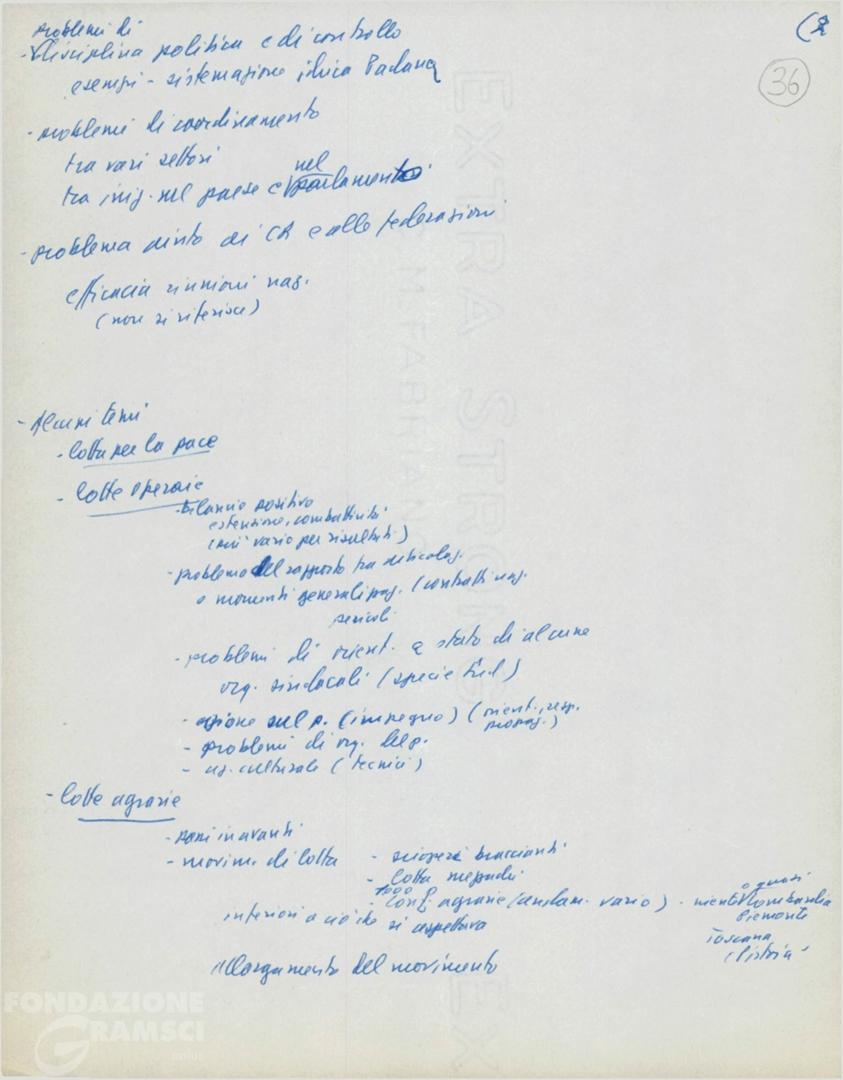 (2
36
problemi di
- disciplina politica e di controllo
esempi - sistemazione idrica Padana
- problemi di coordinamento
tra vari settori
tra iniz. nel paese e nel parlamento
- problema aiuto ai CR e alle federazioni
efficacia riunioni naz.
(non si riferisce)
- Alcuni temi
- lotta per la pace
- lotte operaie
- bilancio positivo
estensione, combattività
(più vario per risultati)
- problema del rapporto tra articolaz.
e momenti generali (contratti naz.
pericoli
- problemi di orient. e stato di alcune
org. sindacali (specie
- azione del p. (impegno) (orient., resp.
propag.)
- problemi di org. del p.
- az. culturale (tecnici)
- lotte agrarie
- passi in avanti
- movim. di lotta - scioperi braccianti
- lotta mezzadri
- 1000 conf. agrarie (andam. vario) - niente o quasi Lombardia
Piemonte
Toscana
(Pistoia)
inferiori a ciò che si aspettava
allargamento del movimento
EXTRA STRONG
M. FABRIANO
EX
FONDAZIONE
GRAMSCI